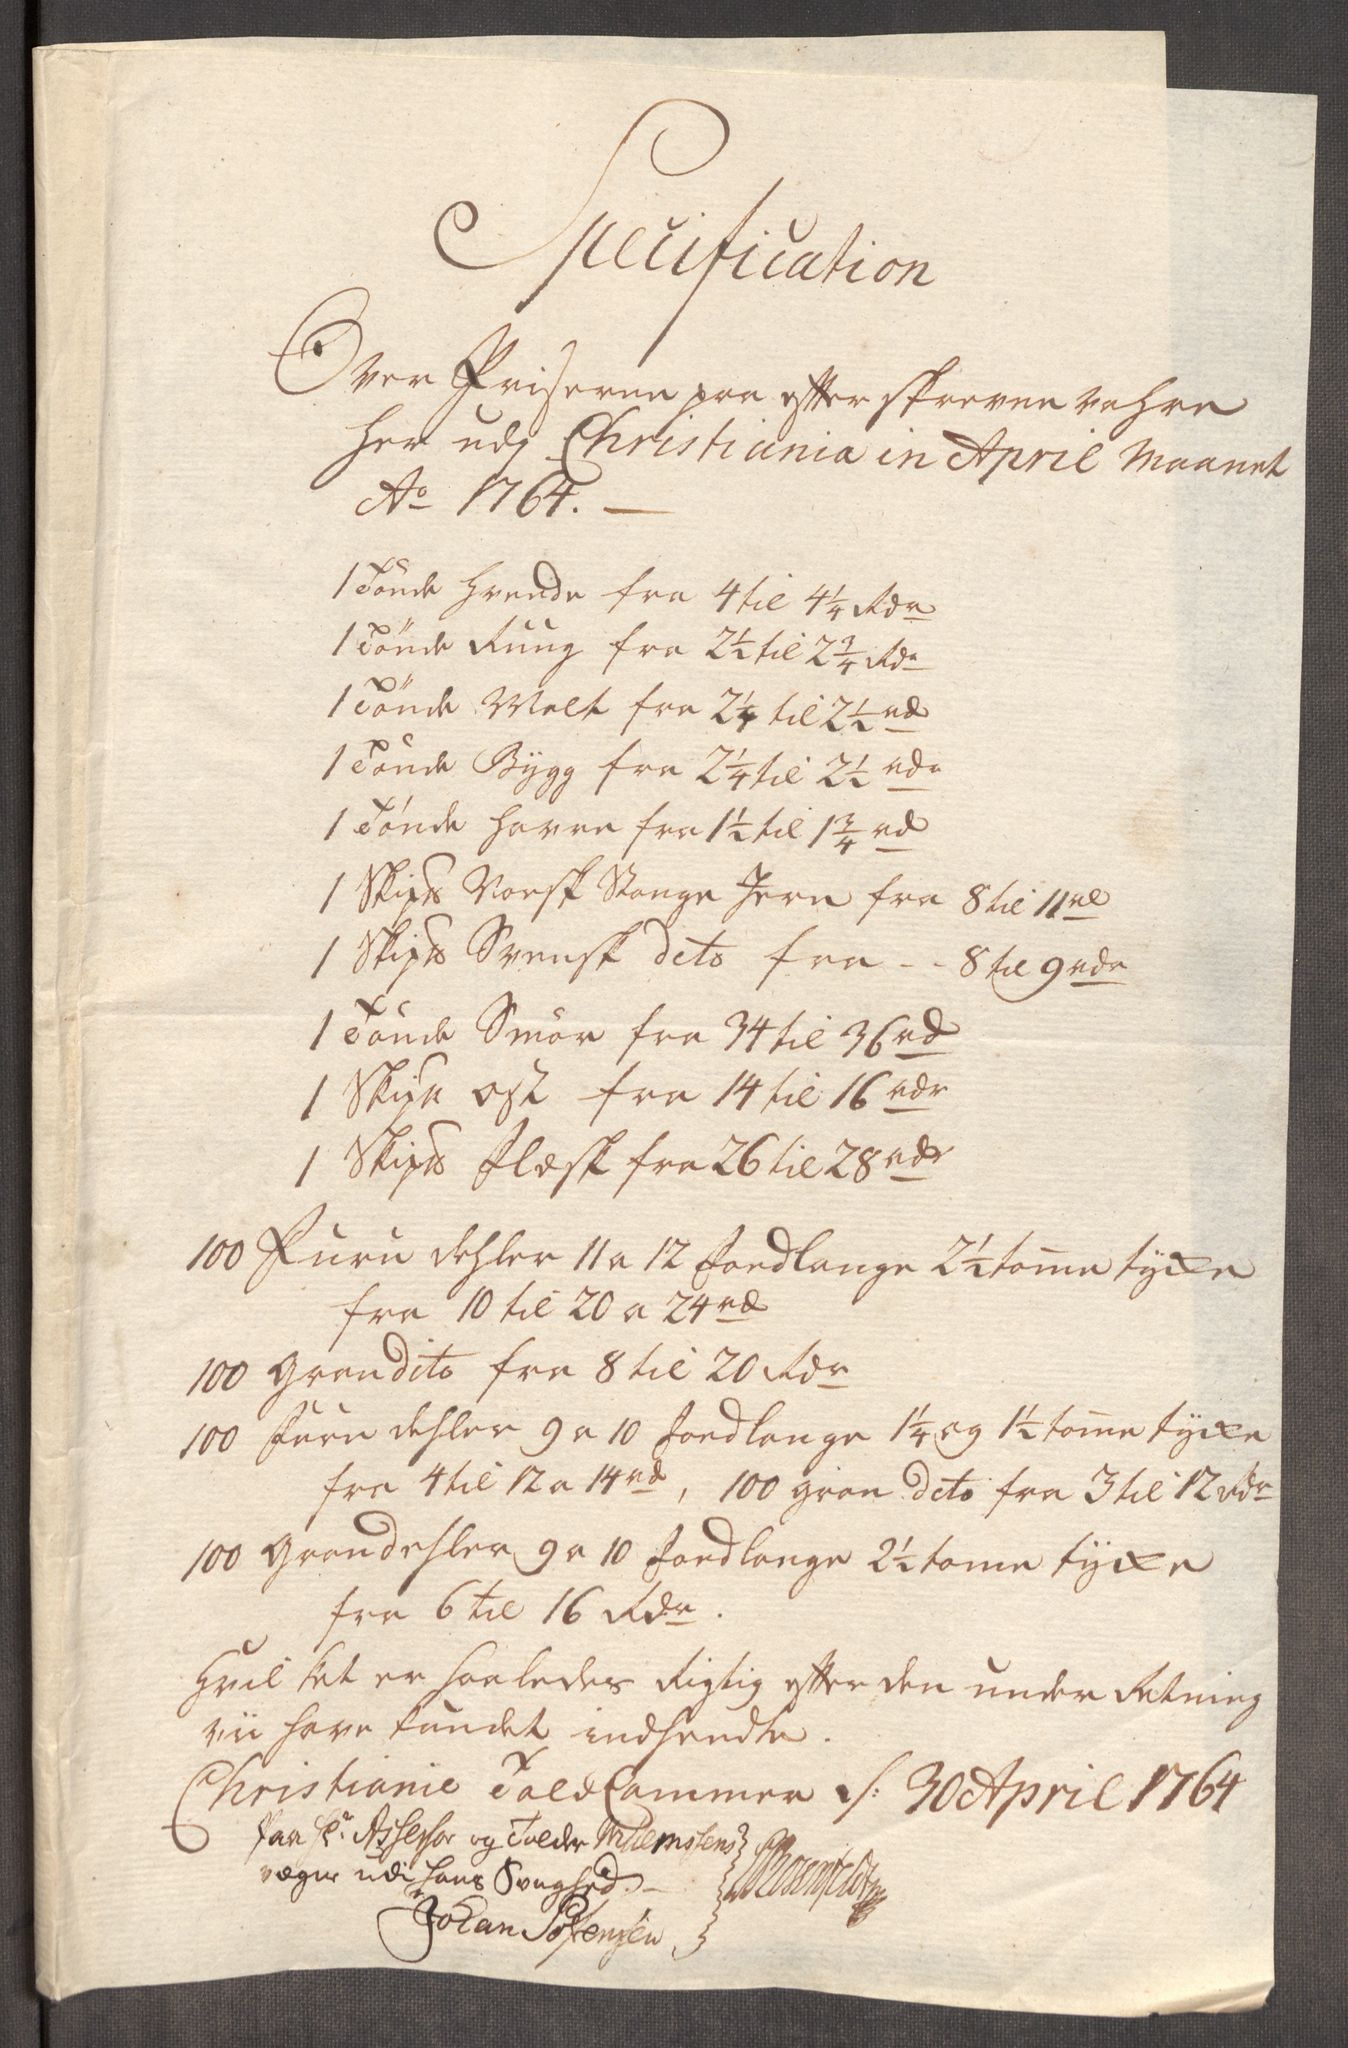 Specification
Over Priserne paa efter skrevne vahre
her udj Christiania in April Maanet
Ao 1764.
1 Tönde Hvede fra 4 til 4 1/4 Rdr
1 Tönde Ruug fra 2 1/2 til 2 3/4 Rdr
1 Tönde Malt fra 2 1/4 til 2 1/2 rd
1 Tönde Bÿgg fra 2 1/4 til 2 1/2 rdr
1 Tönde Havre fra 1 1/2 til 1 3/4 rd
1 Skip Norsk Stange Jern fra 8 til 11 rd
1 Skip Svensk dito fra - - 8 til 9 rdr
1 Tönde Smör fra 34 til 36 rd
1 Skip Ost fra 14 til 16 rdr
1 Skip Flæsk fra 26 til 28 rdr
100 Furu dehler 11 a 12 foedlange 2 1/2 tome tÿcke
fra 10 til 20 a 24 rd
100 Gran dito fra 8 til 20 Rdr
100 Furu dehler 9 a 10 foedlange 1 1/4 og 1 1/2 tome tÿcke
fra 4 til 12 a 14 rd, 100 gran dito fra 3 til 12 Rdr
100 Grandehler 9 a 10 foedlange 2 1/2 tome tÿcke
fra 6 til 16 Rdr.
Hvilket er saaledes Rigtig efter den underRetning
vii have kundet indhendte.
Christianie Told Cammer d: 30 April 1764
Paa Hr Assessor og Tolder Willemsens
vegne udi hans Svaghed.
Johan Sörensen